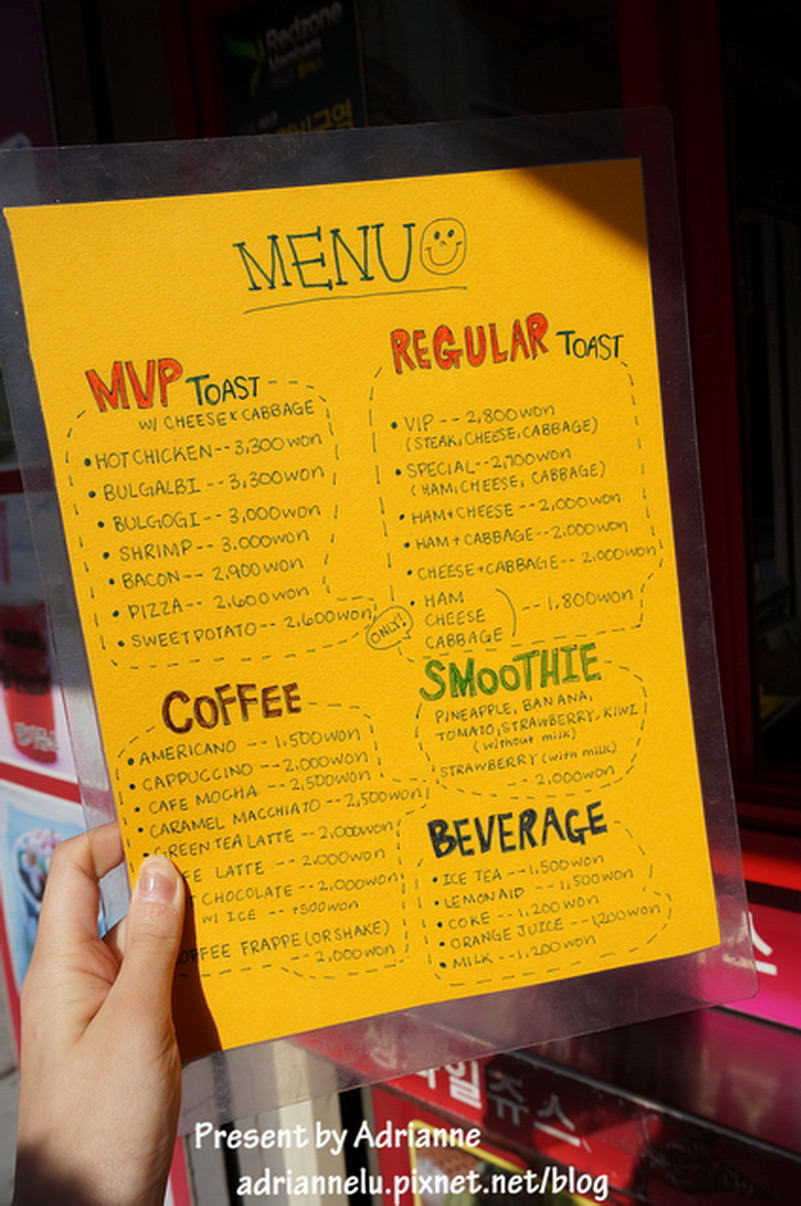 Redzone
MENU
MVP TOAST
W/ CHEESE & CABBAGE
• HOT CHICKEN -- 3,300 won
• BULGALBI -- 3,300 won
• BULGOGI -- 3,000won
• SHRIMP -- 3,000won
• BACON -- 2,900 won
• PIZZA -- 2,600 won
• SWEET POTATO -- 2,600won
REGULAR TOAST
• VIP -- 2,800won
(STEAK, CHEESE, CABBAGE)
• SPECIAL -- 2,700won
(HAM, CHEESE, CABBAGE)
• HAM+CHEESE -- 2,000won
• HAM + CABBAGE -- 2,000won
• CHEESE+CABBAGE -- 2,000won
• HAM
CHEESE
CABBAGE
-- 1,800won
ONLY!
COFFEE
• AMERICANO -- 1,500won
• CAPPUCCINO -- 2,000won
• CAFE MOCHA -- 2,500won
• CARAMEL MACCHIATO -- 2,500won
• GREEN TEA LATTE -- 2,000won
LATTE -- 2,000won
CHOCOLATE -- 2,000won
W/ ICE -- +500won
FRAPPE (OR SHAKE)
-- 2,000won
SMOOTHIE
PINEAPPLE, BANANA,
TOMATO, STRAWBERRY, KIWI
(without milk)
STRAWBERRY (with milk)
-- 2,000won
BEVERAGE
• ICE TEA -- 1,500won
• LEMONAID -- 1,500won
• COKE -- 1,200won
• ORANGE JUICE -- 1,200won
• MILK -- 1,200won
스
일쥬스
Present by Adrianne
adriannelu.pixnet.net/blog